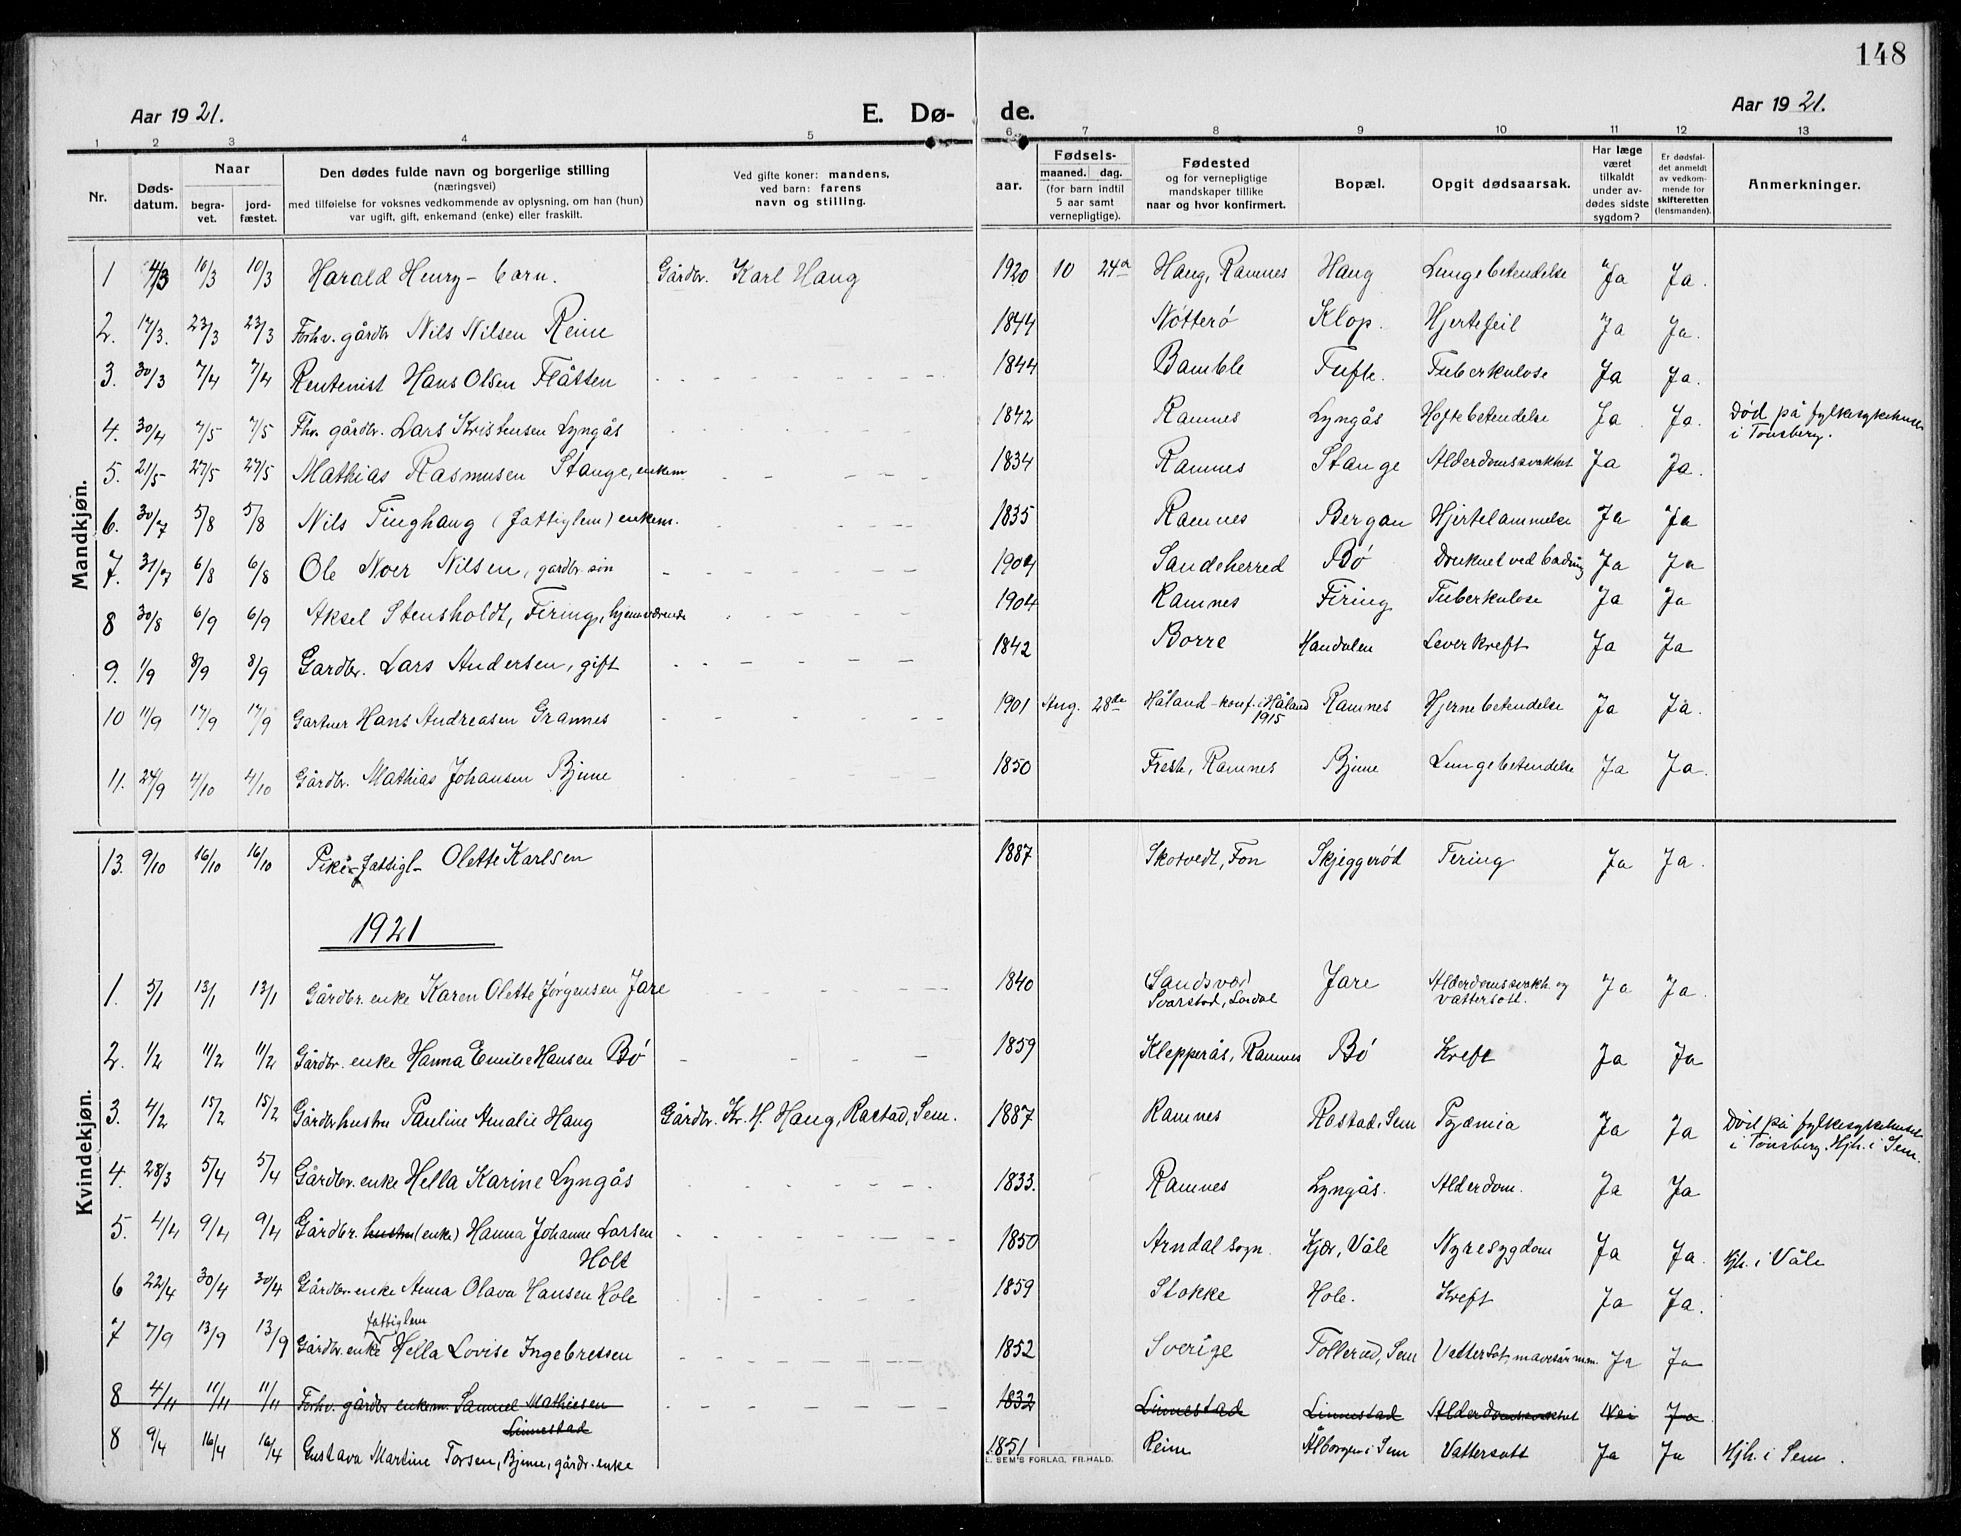 148
Aar 1921. E. Dø- de. Aar 1921.
1 2 3 4 5 6 7 8 9 10 11 12 13
Nr. Døds-datum. Naar begra-vet. jord-fæstet. Den dødes fulde navn og borgerlige stilling (næringsvei) med tilføielse for voksnes vedkommende av oplysning, om han (hun) var ugift, gift, enkemand (enke) eller fraskilt. Ved gifte koner: mandens, ved barn: farens navn og stilling. Fødsels- aar. maaned. dag. (for barn indtil 5 aar samt vernepligtige). Fødested og for vernepligtige mandskaper tillike naar og hvor konfirmert. Bopæl. Opgit dødsaarsak. Har læge været tilkaldt under av-dødes sidste sygdom? Er dødsfal-det anmeldt av vedkom-mende for skifteretten (lensmanden). Anmerkninger.
Mandkjøn.
1 4/3 10/3 10/3 Harald Henry – barn. Gårdbr. Karl Haug 1920 10 24de Haug, Ramnes Haug Lungebetendelse Ja Ja.
2. 17/3. 23/3 23/3 Forhv. gårdbr Nils Nilsen Reine 1844 Nøtterø Klop. Hjertefeil Ja Ja.
3. 30/3 7/4 7/4 Rentenist Hans Olsen Flåtten 1844 Bamble Tufte. Tuberkulose Ja Ja.
4. 30/4 7/5 7/5 Fhv. gårdbr. Lars Kristensen Lyngås 1842 Ramnes Lyngås Hoftebetendelse Ja Ja. Død på fylkesykehuset i Tønsberg.
5. 21/5 27/5 27/5 Mathias Rasmusen Stange, enkem. 1834 Ramnes Stange Alderdomssvakhet Ja Ja.
6. 30/7 5/8 5/8 Nils Tinghaug (fattiglem) enkem. 1835 Ramnes Bergan Hjertelammelse Ja Ja
7. 31/7 6/8 6/8 Ole Noer Nilsen, gardbr. søn 1904 Sandeherred Bø Druknet ved bading Ja Ja
8 30/8 6/9 6/9 Aksel Stensholdt, Firing, hjemværende 1904 Ramnes Firing Tuberkulose Ja Ja
9. 1/9 8/9 8/9 Gardbr. Lars Andersen, gift 1842 Borre Handalen Leverkreft Ja Ja
10 11/9 17/9 17/9 Gartner Hans Andreasen Grannes 1901 Aug. 28de Håland – konf. i Håland 1915 Ramnes Hjernebetendelse Ja Ja.
11. 24/9 4/10 4/10 Gårdbr. Mathias Johansen Bjune 1850 Freste, Ramnes Bjune Lungebetendelse Ja Ja.
Kvindekjøn.
13. 9/10 16/10 16/10 Pike – fattigl – Olette Karlsen 1887 Skotvedt, Fon Skjeggerød Tering Ja Ja.
1921
1. 5/1 13/1 13/1 Gårdbr. enke Karen Olette Jørgensen Jare 1840 Sandsvær Svarstad, Lardal Jare Alderdomssvakh. og vattersott. Ja Ja.
2. 1/2 11/2 11/2 Gårdbr. enke Hanna Emilie Hansen Bø 1859 Klepperås, Ramnes Bø Kreft Ja Ja
3. 4/2 15/2 15/2 Gårdbr hustru Pauline Amalie Haug Gårdbr. Kr. H. Haug, Rastad, Sem. 1887 Ramnes Rastad, Sem Pyæmia Ja Ja Død på fylkesykehuset i Tønsberg. Hjh. i Sem.
4. 28/3 5/4 5/4 Gårdbr. enke Hella Karine Lyngås 1833. Ramnes Lyngås. Alderdom. Ja Ja
5. 4/4 9/4 9/4 Gårdbr. hustru (enke) Hanna Johanne Larsen Holt 1850 Arndal sogn. Kjær, Våle Nyresygdom Ja Ja. Hjh. i Våle
6 22/4 30/4 30/4 Gårdbr enke Anna Olava Hansen Hole 1859 Stokke Hole. Kreft Ja Ja.
7 7/9 13/9 13/9 Gårdbr. enke fattiglem Hella Lovise Ingebretsen 1852 Sverige Tollerød, Sem Vattersot, mavesår m.m. Ja Ja
8 4/11 11/11 11/11 Forhv. gårdbr enkem. Samuel Mathiesen Linnestad 1832 Linnestad Linnestad Alderdomssvakhet Nei Ja
8 9/4 16/4 16/4 Gustava Martine Torsen, Bjune, gårdbr. enke 1851 Reine i Sem Vattersott Ja Ja Hjh. i Sem.
E. SEM'S FORLAG, FR.HALD.